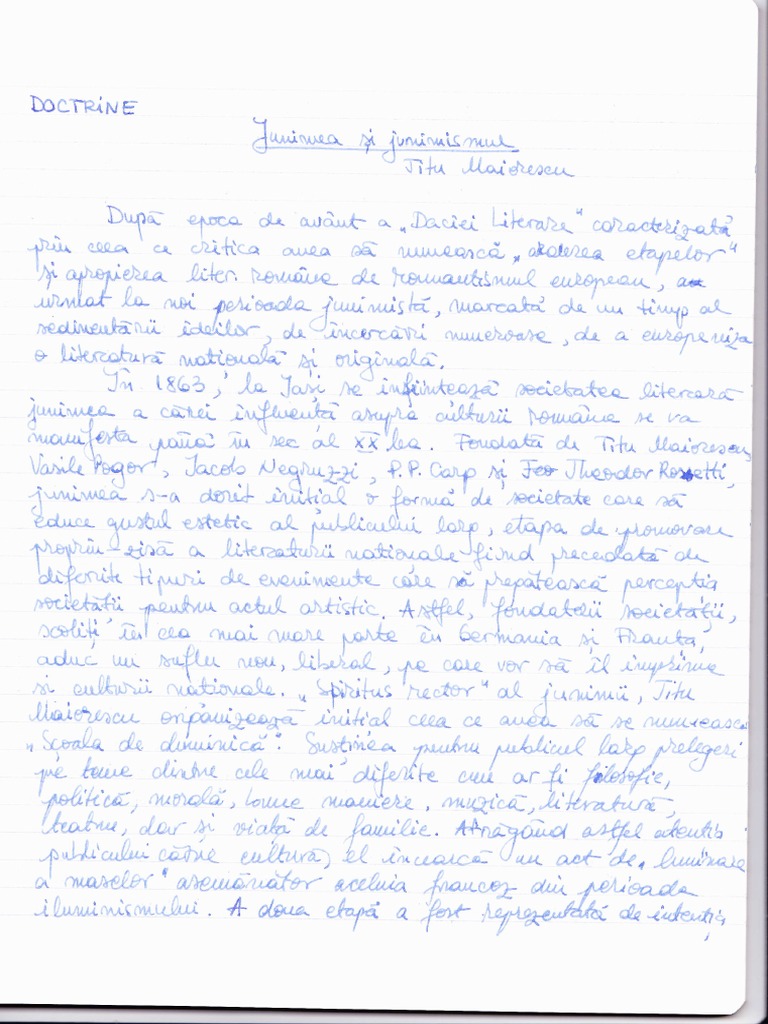 DOCTRINE
Junimea și junimismul
Titu Maiorescu
După epoca de avânt a „Daciei Literare" caracterizată
prin ceea ce critica avea să numească „arderea etapelor"
și apropierea liter. române de romantismul european, a
urmat la noi perioada junimistă, marcată de un timp al
sedimentării ideilor, de încercări numeroase, de a europeniza
o literatură natională și originală.
În 1863, la Iași se înființează societatea literară
junimea a cărei influență asupra culturii române se va
manifesta până în sec al XX lea. Fondată de Titu Maiorescu,
Vasile Pogor, Iacob Negruzzi, P.P. Carp și Theodor Rosetti,
junimea s-a dorit initial o formă de societate care să
educe gustul estetic al publicului larg, etapa de promovare
propriu-zisă a literaturii nationale fiind precedată de
diferite tipuri de evenimente care să pregătească perceptia
societății pentru actul artistic. Astfel, fondatorii societății,
școliți în cea mai mare parte în Germania și Franța,
aduc un suflu nou, liberal, pe care vor să îl imprime
si culturii nationale. „Spiritus rector" al junimii, Titu
Maiorescu organizează initial ceea ce avea să se numească
„Școala de duminică". Susținea pentru publicul larg prelegeri
pe teme dintre cele mai diferite cum ar fi filosofie,
politică, morală, bune maniere, muzică, literatură,
teatru, dar și viață de familie. Atrăgând astfel atenția
publicului către cultură, el încearcă un act de „luminare
a maselor" asemănător aceluia francez din perioada
iluminismului. A doua etapă a fost reprezentată de intenția